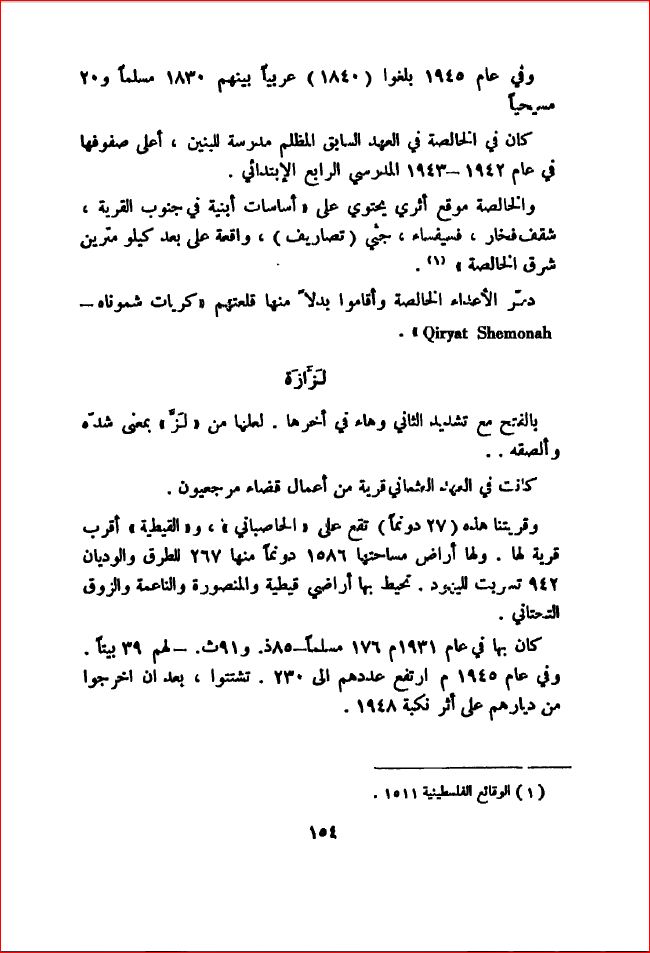 وفي عام ١٩٤٥ بلغوا (١٨٤٠) عربياً بينهم ١٨٣٠ مسلماً و٢٠
مسيحياً
كان في الخالصة في العهد السابق المظلم مدرسة للبنين ، أعلى صفوفها
في عام ١٩٤٢ –١٩٤٣ المدرسي الرابع الإبتدائي .
والخالصة موقع أثري يحتوي على « أساسات أبنية في جنوب القرية ،
شقف فخار ، فسيفساء ، جثي (تصاريف) ، واقعة على بعد كيلو مترين
شرق الخالصة » (١) .
دمّر الأعداء الخالصة وأقاموا بدلاً منها قلعتهم «كريات شموناه –
Qiryat Shemonah » .
لَزَّازَة
بالفتح مع تشديد الثاني وهاء في أخرها . لعلها من « لَزَّ » بمعنى شدّه
وألصقه . .
كانت في العهد العثماني قرية من أعمال قضاء مرجعيون .
وقريتنا هذه (٢٧ دونماً) تقع على « الحاصباني » ، و« القيطية » أقرب
قرية لها . ولها أراض مساحتها ١٥٨٦ دونماً منها ٢٦٧ للطرق والوديان
٩٤٢ تسربت لليهود . تحيط بها أراضي قيطية والمنصورة والناعمة والزوق
التحتاني .
كان بها في عام ١٩٣١م ١٧٦ مسلماً–٨٥ذ. و٩١ث. – لهم ٣٩ بيتاً .
وفي عام ١٩٤٥ م ارتفع عددهم الى ٢٣٠ . تشتتوا ، بعد ان اخرجوا
من ديارهم على أثر نكبة ١٩٤٨ .
(١) الوقائع الفلسطينية ١٥١١ .
١٥٤